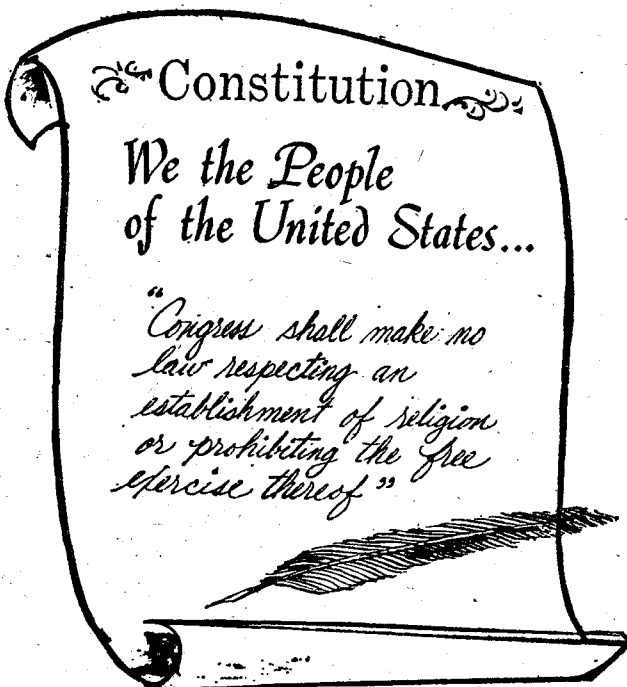 Constitution
We the People
of the United States...
"Congress shall make no
law respecting an
establishment of religion
or prohibiting the free
exercise thereof"